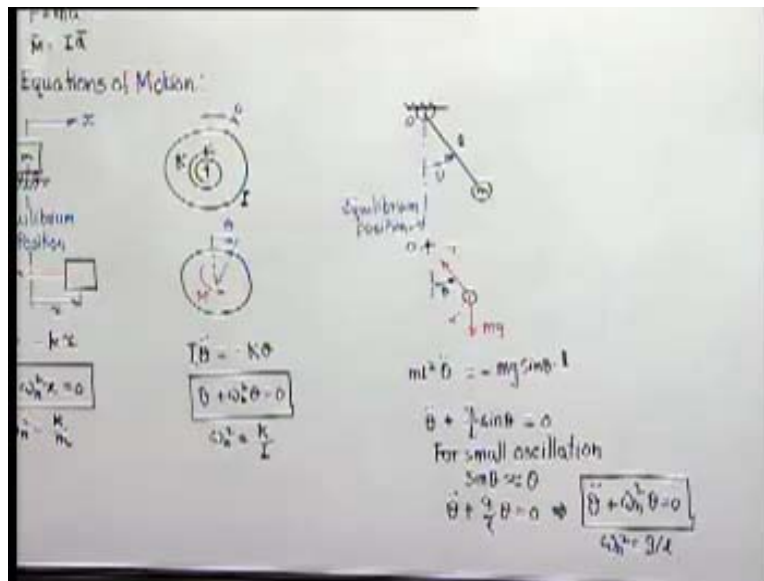 M̄ = Iᾱ
Equations of Motion:
x
m
Equilibrium
Position
x
- kx
ωn²x = 0
k/m
θ
K
I
θ
M
Iθ̈ = -Kθ
θ̈ + ωn²θ = 0
ωn² = K/I
O
l
θ
m
Equilibrium
position
O
θ
mg
ml²θ̈ = - mg sinθ · l
θ̈ + g/l sinθ = 0
For small oscillation
Sinθ ≈ θ
θ̈ + g/l θ = 0 ⇒ θ̈ + ωn²θ = 0
ωn² = g/l